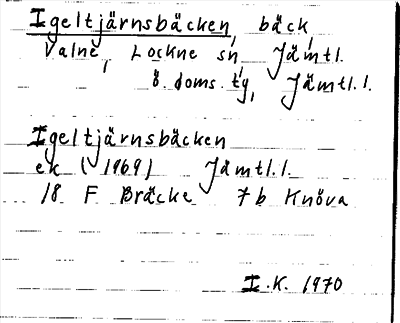 Igeltjärnsbäcken, bäck,
Valne, Lockne sn, Jämtl.
ö. doms. tg, Jämtl.l.
Igeltjärnsbäcken
ek (1969) Jämtl.l.
18 F Bräcke 7b Knöva
I.K. 1970